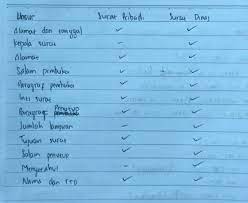 Unsur Surat Pribadi Surat Dinas
Alamat dan tanggal ✓ ✓
Kepala surat - ✓
Alamat ✓ ✓
Salam pembuka ✓ ✓
Paragraf pembuka ✓ ✓
Inti surat ✓ ✓
Paragraf penutup ✓ ✓
Jumlah lampiran - ✓
Tujuan surat ✓ ✓
Salam penutup ✓ ✓
Mengetahui - ✓
Nama dan TTD ✓ ✓